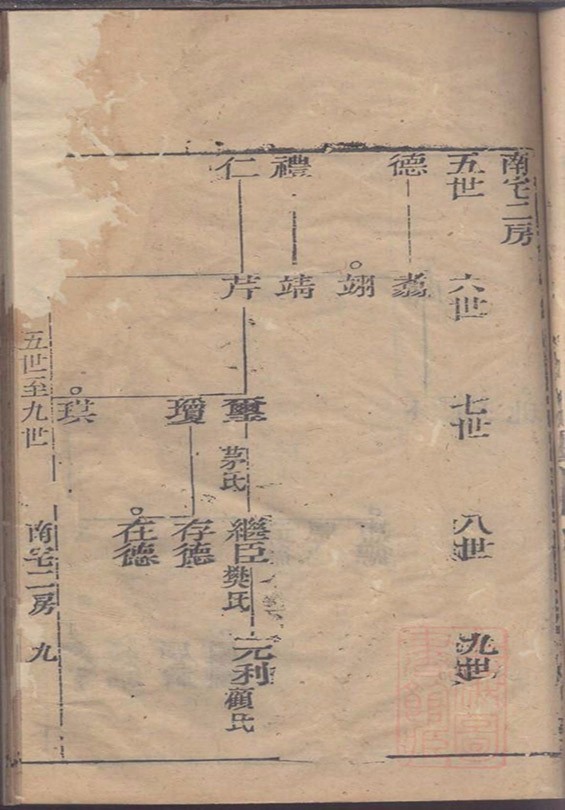 南宅二房
五世
六世
七世
八世
九世
德
翥
翊
禮
靖
仁
芹
璽
茅氏
繼臣
樊氏
元利
顧氏
瓊
存德
在德
琪
五世至九世
南宅二房
九